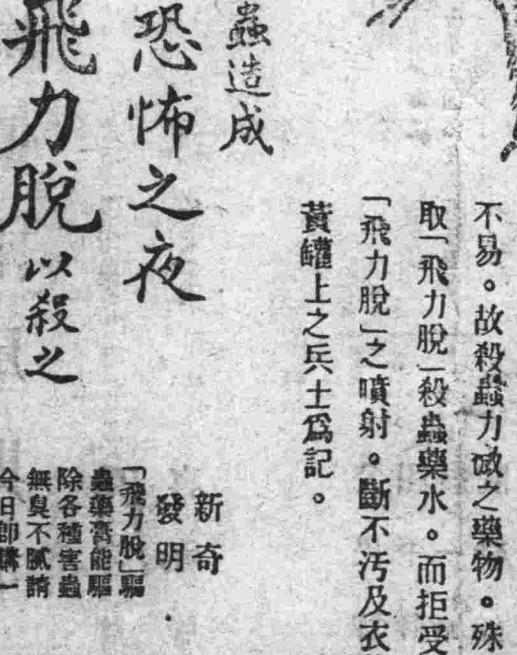 不易。故殺蟲力減之藥物。殊
取「飛力脫」殺蟲藥水。而拒受
「飛力脫」之噴射。斷不汚及衣
黃罐上之兵士爲記。
蟲造成
恐怖之夜
飛力脫以殺之
新奇
發明
「飛力脫」驅
蟲藥膏能驅
除各種害蟲
無臭不膩請
今日卽購一